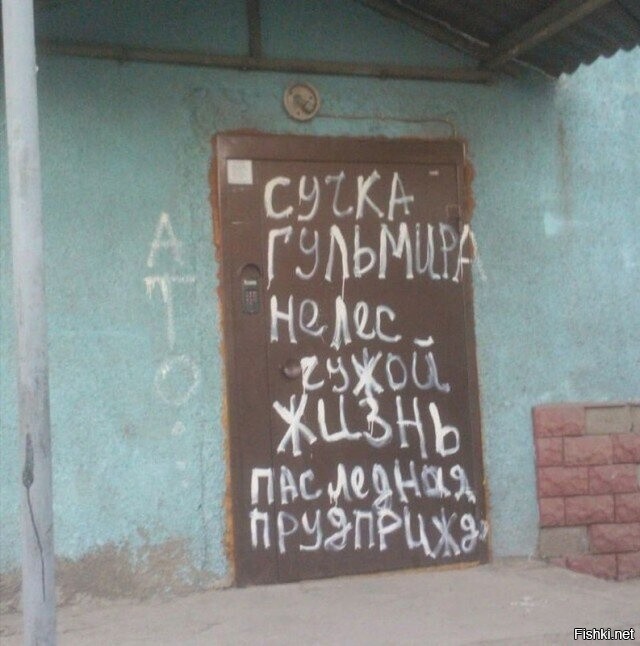 А
Т
О.
СУЧКА
ГУЛЬМИРА
НеЛеС
ЧУЖОЙ
ЖИЗНЬ
ПАСЛедНАЯ
ПРУдПРИЖд
Fishki.net